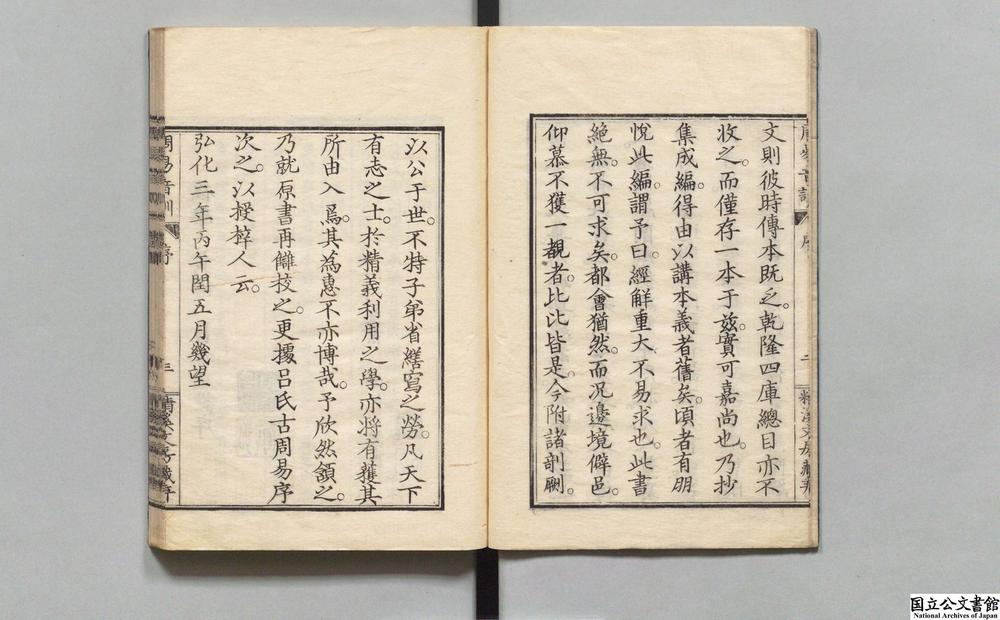 文則彼時傳本既乏。乾隆四庫總目亦不
收之。而僅存一本于兹。實可嘉尚也。乃抄
集成編。得由以講本義者舊矣。頃者有朋
悅此編。謂予曰。經解重大不易求也。此書
絶無。不可求矣。都會猶然。而况邊境僻邑。
仰慕不獲一覩者。比比皆是。今附諸剞劂。
以公于世。不特子弟省繕寫之勞。凡天下
有志之士。於精義利用之學。亦将有獲其
所由入焉。其為惠不亦博哉。予欣然頷之。
乃就原書再讎校之。更據吕氏古周易序
次之。以授梓人云。
弘化三年丙午閏五月幾望
周易音訓
序
三
国立公文書館
National Archives of Japan